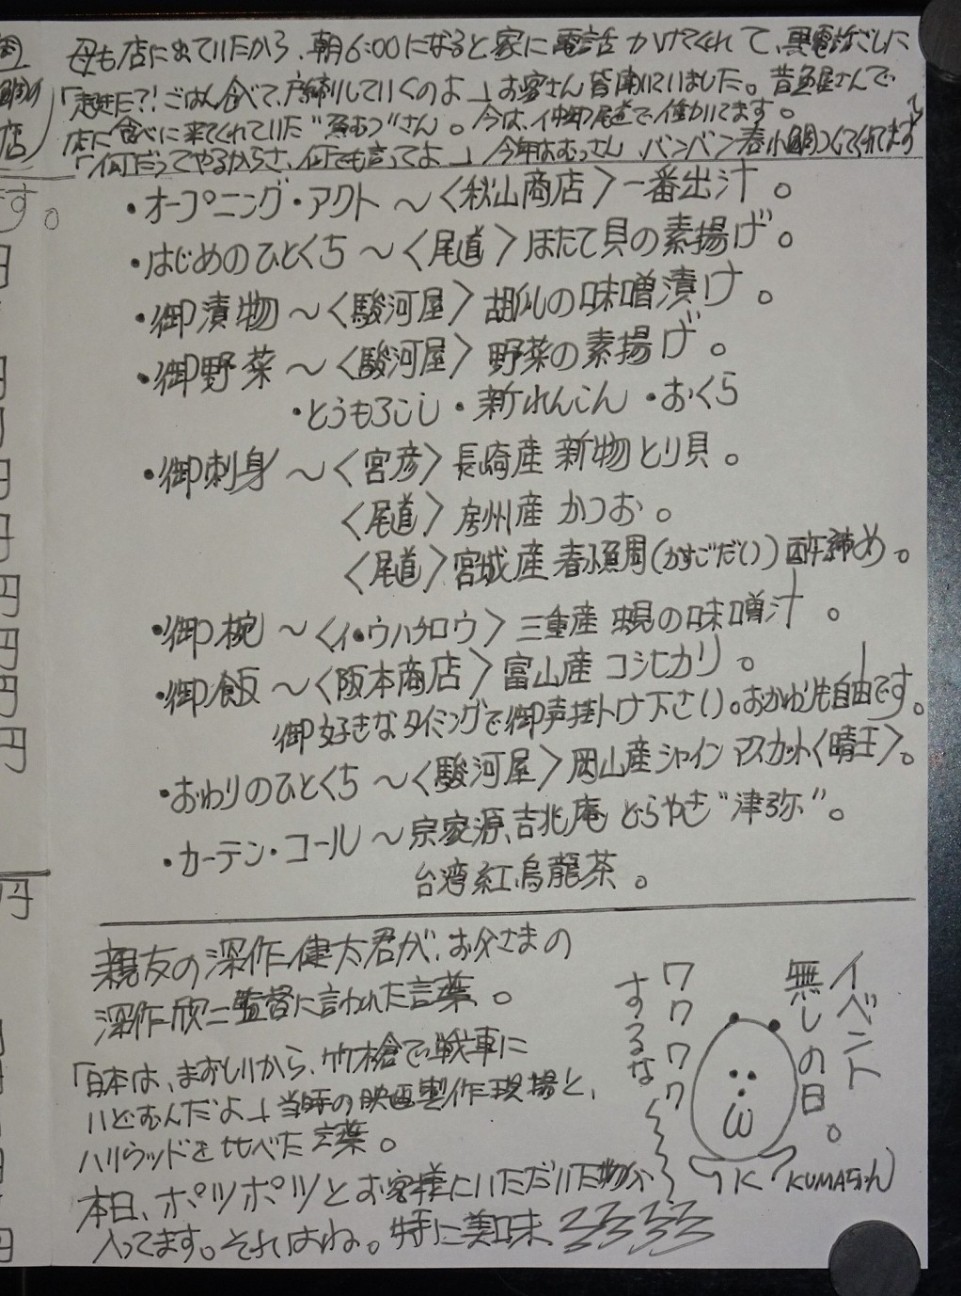 母も店に出ていたから、朝6:00になると家に電話かけてくれて、黒電話ごしに
「起きた?!ごはん食べて、戸締りしていくのよ」お客さん皆聞いていました。昔魚屋さんで
店に食べに来てくれていた"魚むつ"さん。今は、仲卸尾道で働いてます。
「何だってやるからさ、何でも言ってよ」今年はむっさん、バンバン春小鯛つくってくれてます
す。
・オープニング・アクト〜〈秋山商店〉一番出汁。
・はじめのひとくち〜〈尾道〉ほたて貝の素揚げ。
・御漬物〜〈駿河屋〉胡瓜の味噌漬け。
・御野菜〜〈駿河屋〉野菜の素揚げ。
・とうもろこし・新れんこん・おくら
・御刺身〜〈宮彦〉長崎産 新物とり貝。
〈尾道〉房州産 かつお。
〈尾道〉宮城産 春小鯛(かすごだい)酢締め。
・御椀〜〈イ・ウハチロウ〉三重産 蜆の味噌汁。
・御飯〜〈阪本商店〉富山産 コシヒカリ。
御好きなタイミングで御声掛け下さい。おかわりも自由です。
・おわりのひとくち〜〈駿河屋〉岡山産シャインマスカット〈晴王〉。
・カーテン・コール〜宗家源吉兆庵 どらやき"津弥"。
台湾紅烏龍茶。
親友の深作健太君が、お父さまの
深作欣二監督に言われた言葉。
「日本は、まずしいから、竹槍で戦車に
いどむんだよ」当時の映画製作現場と、
ハリウッドを比べた言葉。
本日、ポツポツとお客様にいただいた物が
入ってます。それはね。特に美味
イベント
無しの日。
ワワワワ
するな
KUMAさん
円
円
円
円
円
円
円